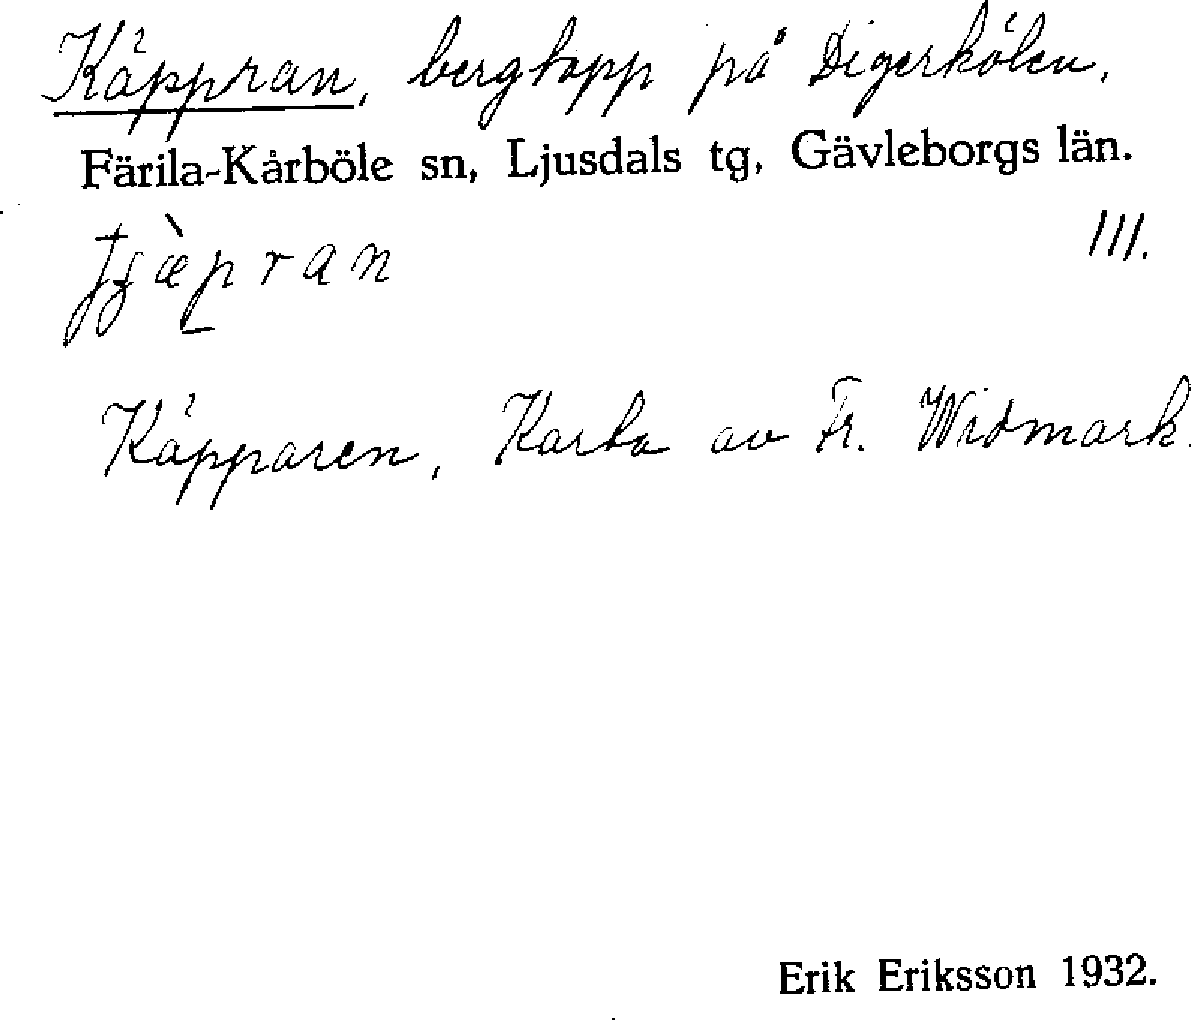 Käppran, bergtopp på Digerkölen.
Färila-Kårböle sn, Ljusdals tg, Gävleborgs län.
III.
Käpparen, Karta av Fr. Widmark.
Erik Eriksson 1932.